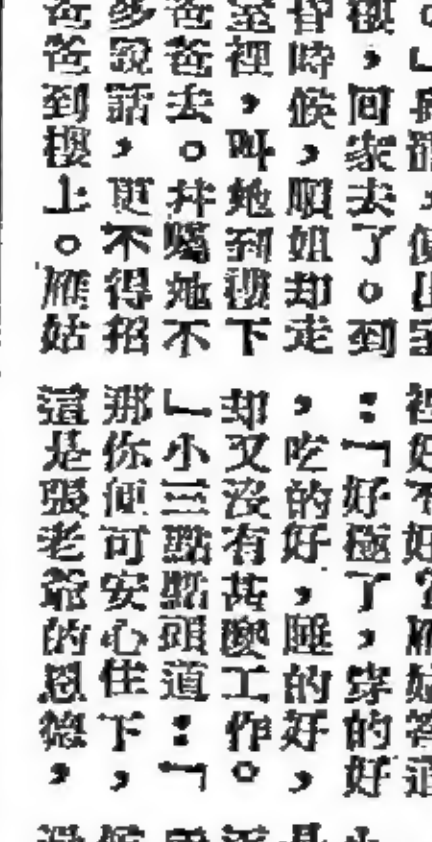 ，回家去了。到
昏時候，順姐却走
室裡，叫她到樓下
爸爸去。并囑她不
多說話，更不得招
爸爸到樓上。雁姑
裡好不好？雁姑答道
：「好極了，穿的好
，吃的好，睡的好，
却又沒有甚麼工作。
」小三點點頭道：「
那你便可安心住下，
這是張老爺的恩德，